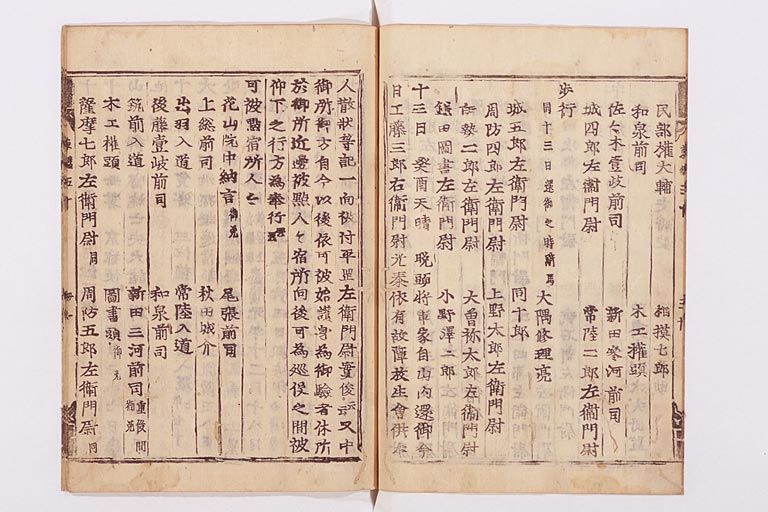 民部權大輔 相摸七郎
和泉前司 木工權頭
佐々木壹岐前司 新田參河前司
城四郎左衞門尉 常陸二郎左衞門尉
步行
同十三日還御之時騎馬 大隅修理亮
城五郎左衞門尉 同十郎
周防四郎左衞門尉 上野太郎左衞門尉
二郎左衞門尉 大曽祢太郎左衞門尉
鎌田圖書左衞門尉 小野澤二郎左衞門尉
十三日 癸酉天晴 晩頭將軍家自山內還御今
日工藤三郎右衞門尉光泰依有故障放生會供奉
人散狀等記一向被付平 左衞門尉實俊云云又中
御所御方自今以後依可被始護身為御驗者休所
於御所近邊被點人々宿所向後可為巡役之間被
仰下之行方為奉行云云
可被點宿所人々
花山院中納言 尾張前司
上総前司 秋田城介
出羽入道 常陸入道
後藤壹岐前司 和泉前司
筑前入道 新田三河前司
木工權頭 圖書頭
薩摩七郎左衞門尉同 周防五郎左衞門尉同